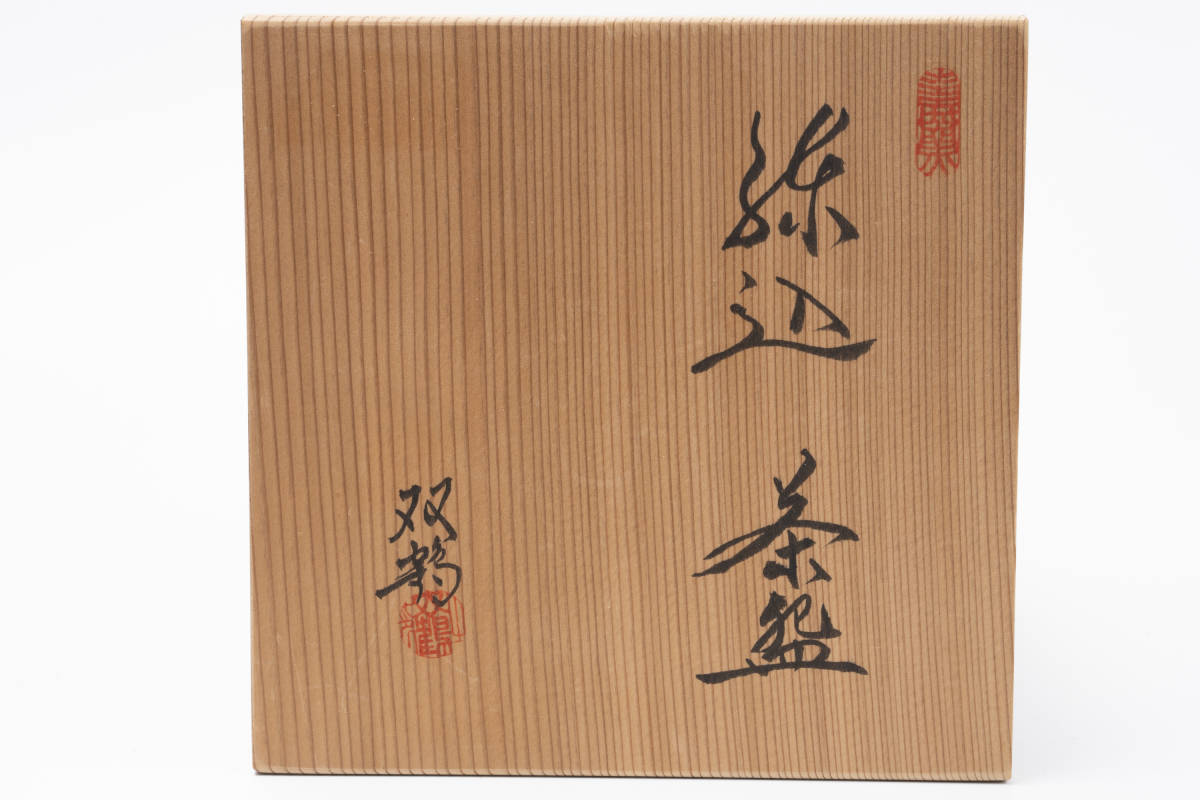 練込 茶盌
双鶴